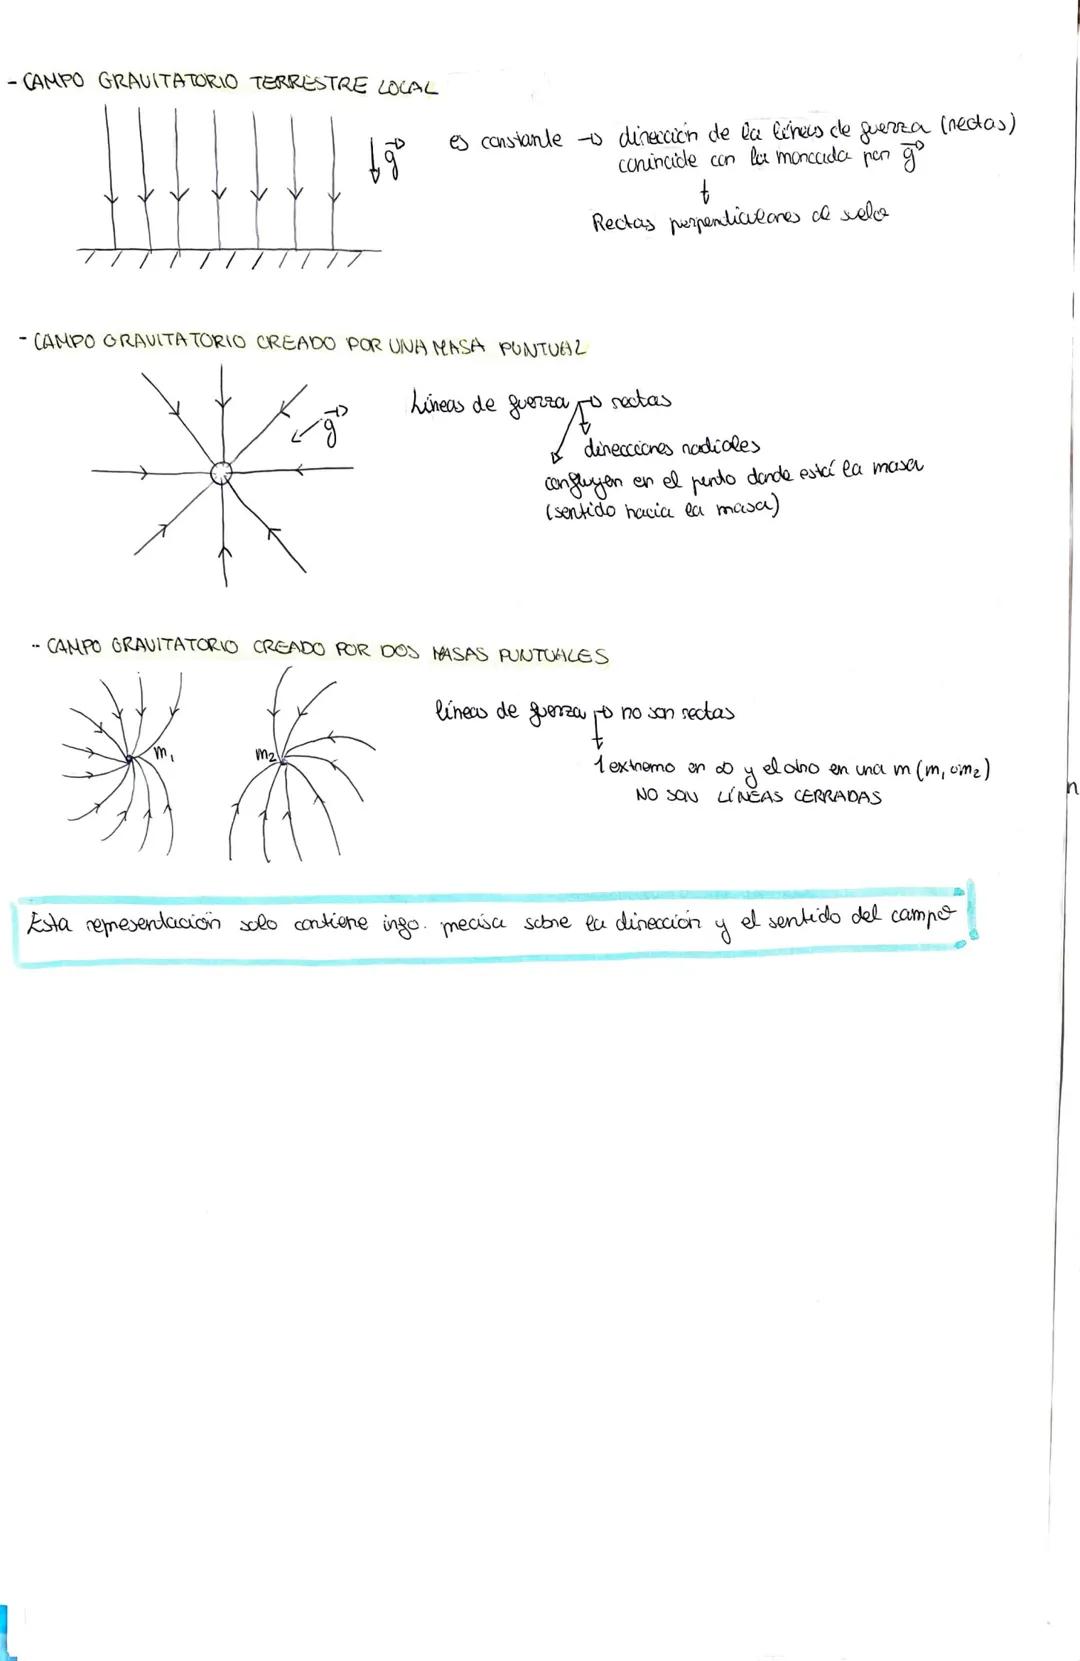 - CAMPO GRAVITATORIO TERRESTRE LOCAL
g
es constante → dirección de la líneas de fuerza (rectas)
conincide con la marcada por g
Rectas perpendiculares al suelo
- CAMPO GRAVITATORIO CREADO POR UNA MASA PUNTUAL
g
Líneas de fuerza → rectas
direcciones radiales
confluyen en el punto donde está la masa
(sentido hacia la masa)
- CAMPO GRAVITATORIO CREADO POR DOS MASAS PUNTUALES
m₁
m₂
líneas de fuerza → no son rectas
1 extremo en ∞ y el otro en una m (m₁ o m₂)
NO SON LÍNEAS CERRADAS
n
Esta representación solo contiene info. precisa sobre la dirección y el sentido del campo